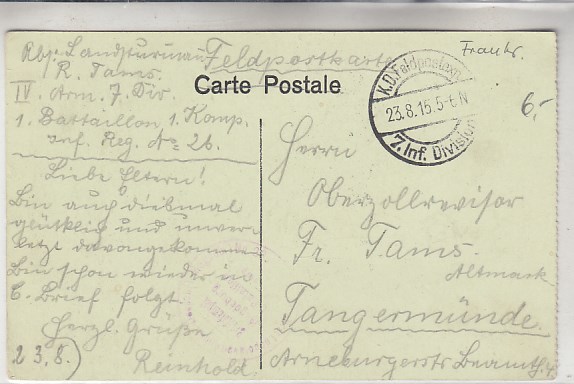 Feldpostkarte
Carte Postale
Abs. Landsturmmann
R. Tams.
IV. Arm. 7. Div.
1. Bataillon 1. Komp.
Inf. Reg. No 26.
Liebe Eltern!
Bin auch diesmal
glücklich und unver-
letzt davongekommen
Bin schon wieder in
Brief folgt.
Herzl. Grüße
23.8.) Reinhold
K.D. Feldpostexp.
23.8.15. 5-6 N
7. Inf. Division
Frankr.
6,-
Herrn
Oberzollrevisor
Fr. Tams.
Altmark
Tangermünde.
Arneburgerstr